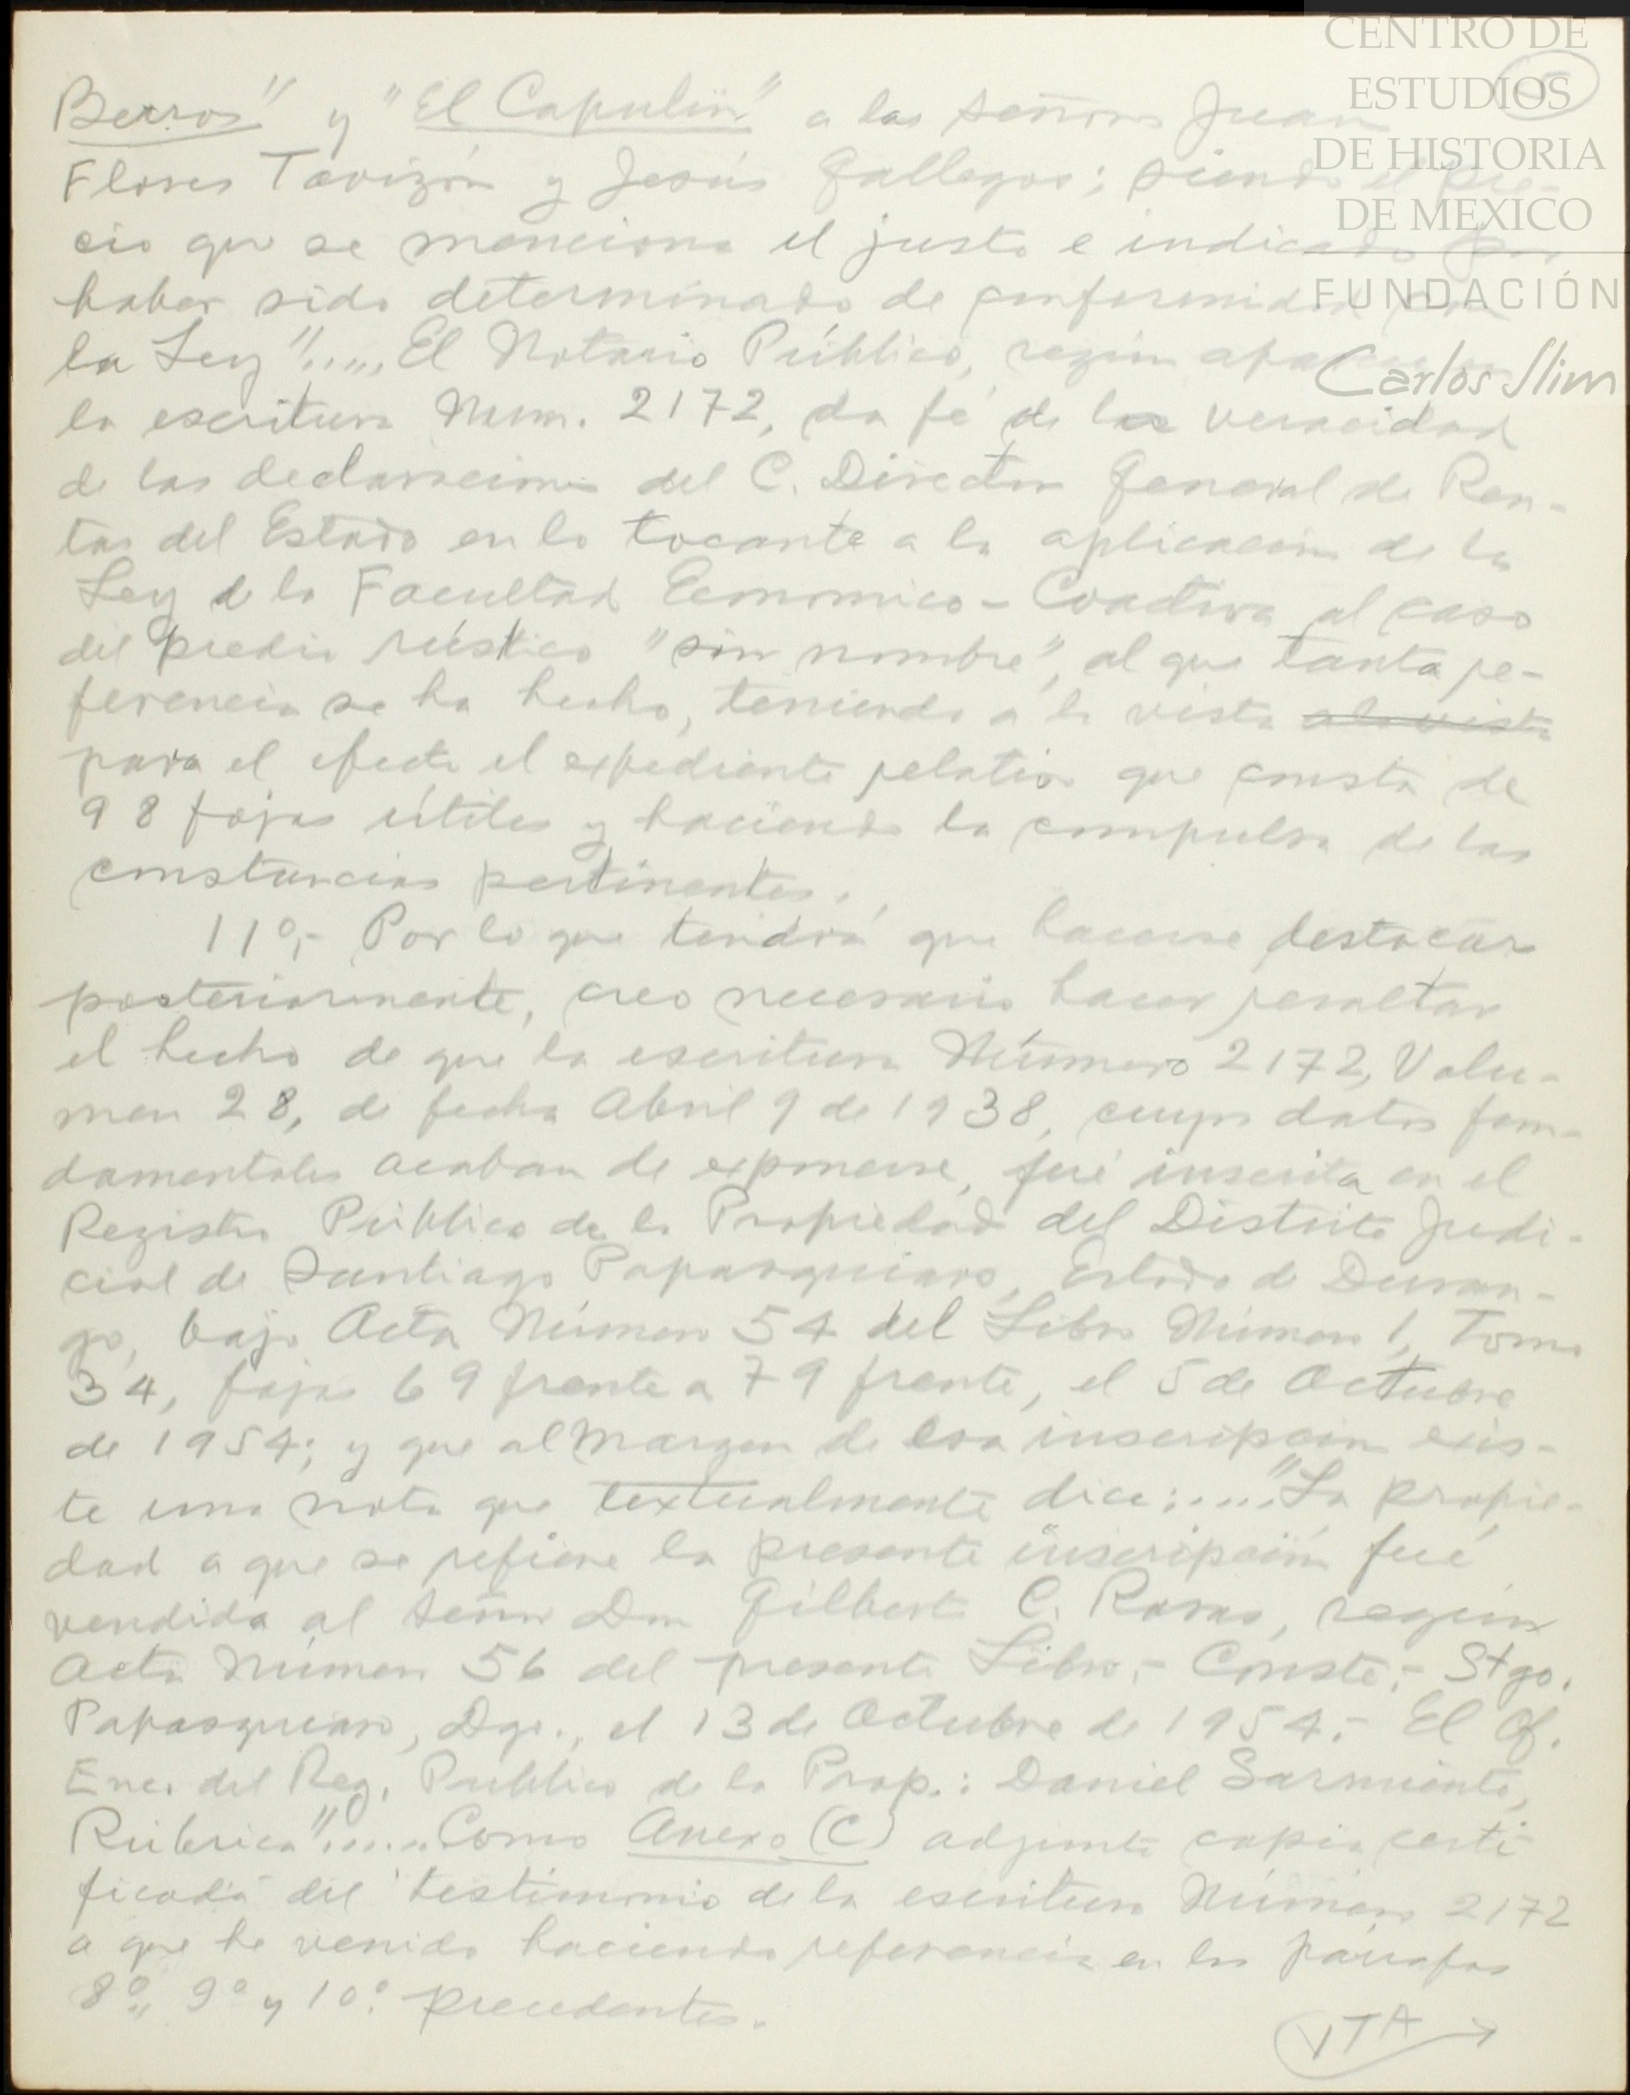 CENTRO DE
ESTUDIOS
DE HISTORIA
DE MEXICO
FUNDACIÓN
Carlos Slim
5
Berros" y "El Capulín" a los señores Juan
Flores Tavizón y Jesús Gallegos; siendo el pre-
cio que se menciona el justo e indicado por
haber sido determinado de conformidad con
la Ley"..... El Notario Público, según aparece en
la escritura Num. 2172, da fé de la veracidad
de las declaraciones del C. Director General de Ren-
tas del Estado en lo tocante a la aplicación de la
Ley de la Facultad Economico-Coactiva al caso
del predio rústico "sin nombre", al que tanta re-
ferencia se ha hecho, teniendo a la vista a la vista
para el efecto el expediente relativo que consta de
98 fojas útiles y haciendo la compulsa de las
constancias pertinentes.
11º,- Por lo que tendrá que hacerse destacar
posteriormente, creo necesario hacer resaltar
el hecho de que la escritura Número 2172, Volu-
men 28, de fecha Abril 9 de 1938, cuyos datos fun-
damentales acaban de exponerse, fué inscrita en el
Registro Público de la Propiedad del Distrito Judi-
cial de Santiago Papasquiaro, Estado de Duran-
go, bajo Acta Número 54 del Libro Número 1, Tomo
34, fojas 69 frente a 79 frente, el 5 de Octubre
de 1954; y que al margen de esa inscripción exis-
te una nota que textualmente dice:...."La propie-
dad a que se refiere la presente inscripción fué
vendida al señor Don Gilberto C. Rosas, según
Acta Número 56 del presente Libro.- Conste.- Stgo.
Papasquiaro, Dgo., el 13 de Octubre de 1954.- El Of.
Enc. del Reg. Publico de la Prop.: Daniel Sarmiento,
Rúbrica"..... Como Anexo (C) adjunto copia certi-
ficada del testimonio de la escritura Número 2172
a que he venido haciendo referencia en los párrafos
8º, 9º y 10º precedentes.
VTA